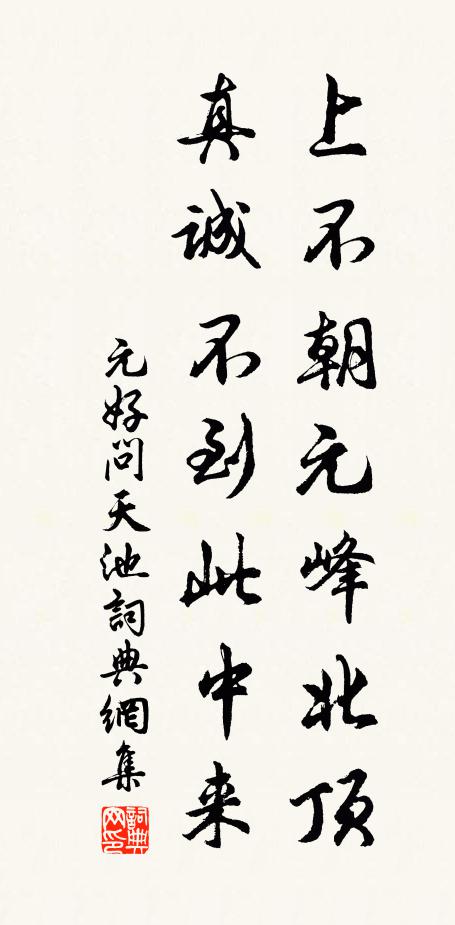 上不朝元峰北顶
真誠不到此中来
元好問天池詞典網集
詞典网印